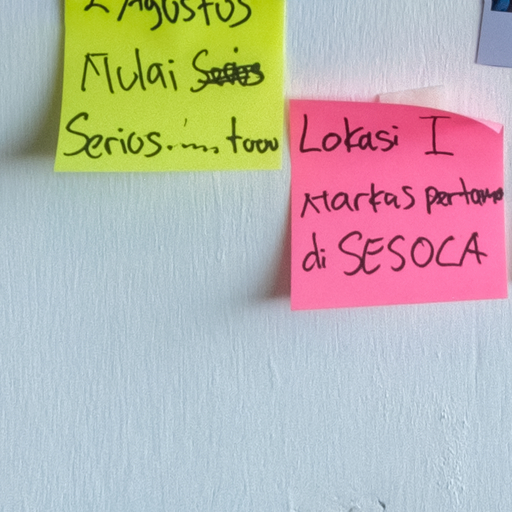 2 Agustus
Mulai
Serios..... toow
Lokasi I
Markas pertama
di SESOCA